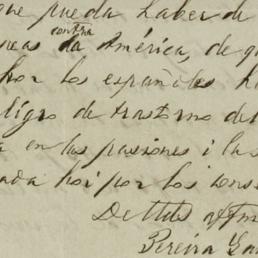 que pueda haber de
contra
la América, de q
por los españoles h
ligro de trastorno de
a en las pasiones i las
ada hoi por los cons
De Uds. aftmo
Pereira Ga